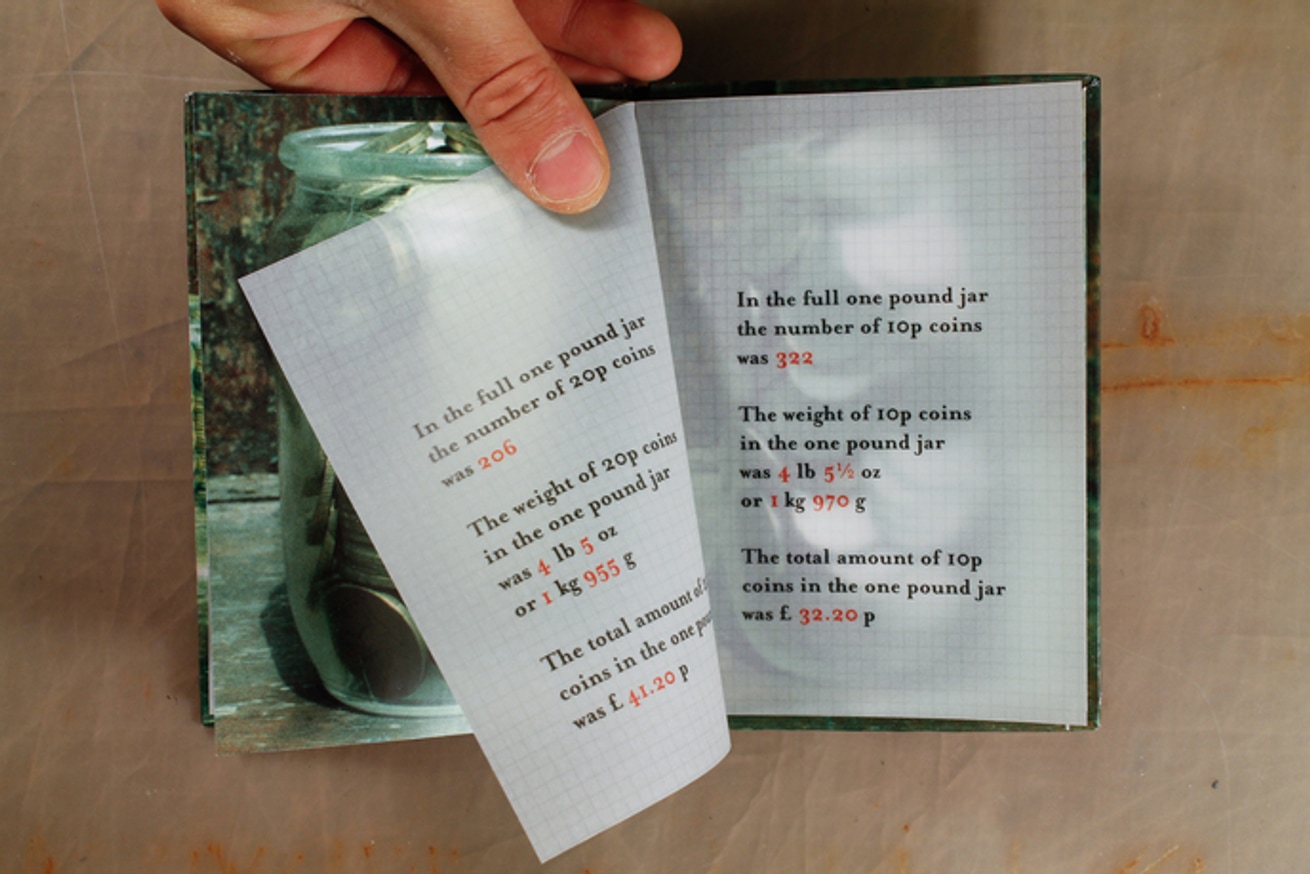 In the full one pound jar
the number of 20p coins
was 206
The weight of 20p coins
in the one pound jar
was 4 lb 5 oz
or 1 kg 955 g
The total amount of
coins in the one
was £ 41.20 p
In the full one pound jar
the number of 10p coins
was 322
The weight of 10p coins
in the one pound jar
was 4 lb 5½ oz
or 1 kg 970 g
The total amount of 10p
coins in the one pound jar
was £ 32.20 p